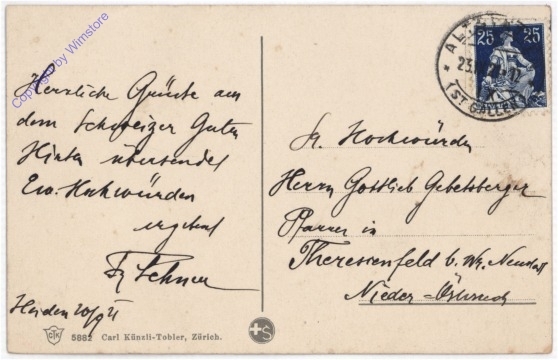 Herzliche Grüsse aus
dem Schweizer Guten
Hirten übersendet
Ew. Hochwürden
ergebenst
Fr. Lehner
Heiden 20/9 21
Sr. Hochwürden
Herrn Gottlieb Gebetsberger
Pfarrer in
Theresienfeld b. Wr. Neustadt
Nieder-Österreich
25 25
(ST. GALLEN)
CTK
5882 Carl Künzli-Tobler, Zürich.
S
Copyright by Wimstore